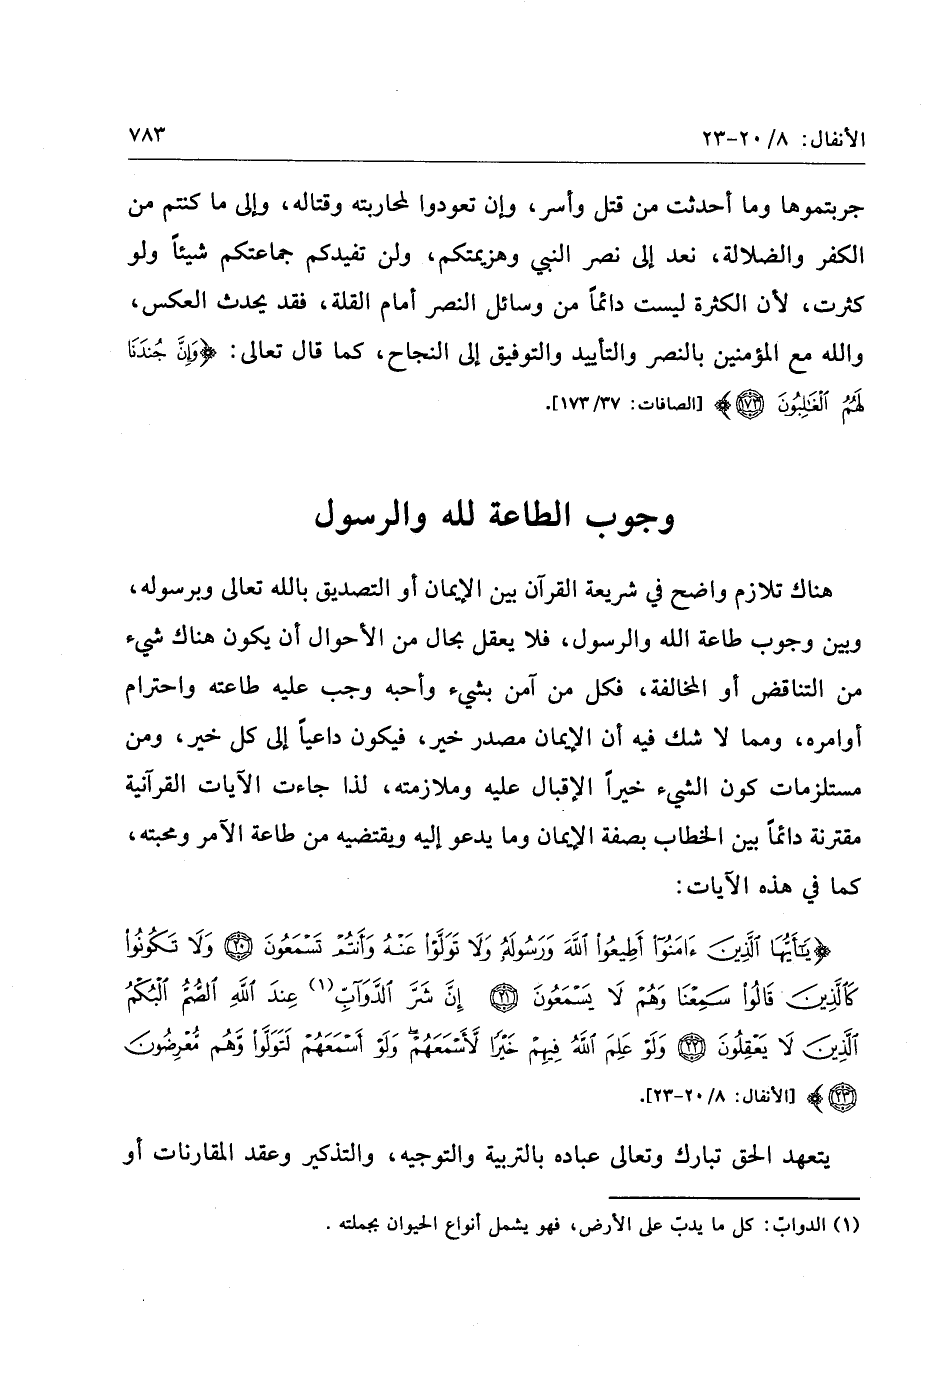 الأنفال: ٢٠/٨-٢٣ ٧٨٣
جربتموها وما أحدثت من قتل وأسر، وإن تعودوا لمحاربته وقتاله، وإلى ما كنتم من
الكفر والضلالة، نعد إلى نصر النبي وهزيمتكم، ولن تفيدكم جماعتكم شيئاً ولو
كثرت، لأن الكثرة ليست دائماً من وسائل النصر أمام القلة، فقد يحدث العكس،
والله مع المؤمنين بالنصر والتأييد والتوفيق إلى النجاح، كما قال تعالى: ﴿وَإِنَّ جُندَنَا
لَهُمُ ٱلْغَٰلِبُونَ ١٧٣﴾ [الصافات: ١٧٣/٣٧].
وجوب الطاعة لله والرسول
هناك تلازم واضح في شريعة القرآن بين الإيمان أو التصديق بالله تعالى وبرسوله،
وبين وجوب طاعة الله والرسول، فلا يعقل بحال من الأحوال أن يكون هناك شيء
من التناقض أو المخالفة، فكل من آمن بشيء وأحبه وجب عليه طاعته واحترام
أوامره، ومما لا شك فيه أن الإيمان مصدر خير، فيكون داعياً إلى كل خير، ومن
مستلزمات كون الشيء خيراً الإقبال عليه وملازمته، لذا جاءت الآيات القرآنية
مقترنة دائماً بين الخطاب بصفة الإيمان وما يدعو إليه ويقتضيه من طاعة الآمر ومحبته،
كما في هذه الآيات:
﴿يَٰٓأَيُّهَا ٱلَّذِينَ ءَامَنُوٓا۟ أَطِيعُوا۟ ٱللَّهَ وَرَسُولَهُۥ وَلَا تَوَلَّوْا۟ عَنْهُ وَأَنتُمْ تَسْمَعُونَ ٢٠ وَلَا تَكُونُوا۟
كَٱلَّذِينَ قَالُوا۟ سَمِعْنَا وَهُمْ لَا يَسْمَعُونَ ٢١ إِنَّ شَرَّ ٱلدَّوَآبِّ(١) عِندَ ٱللَّهِ ٱلصُّمُّ ٱلْبُكْمُ
ٱلَّذِينَ لَا يَعْقِلُونَ ٢٢ وَلَوْ عَلِمَ ٱللَّهُ فِيهِمْ خَيْرًا لَّأَسْمَعَهُمْ ۖ وَلَوْ أَسْمَعَهُمْ لَتَوَلَّوا۟ وَّهُم مُّعْرِضُونَ
٢٣﴾ [الأنفال: ٢٠/٨-٢٣].
يتعهد الحق تبارك وتعالى عباده بالتربية والتوجيه، والتذكير وعقد المقارنات أو
(١) الدوابّ: كل ما يدبّ على الأرض، فهو يشمل أنواع الحيوان بجملته .